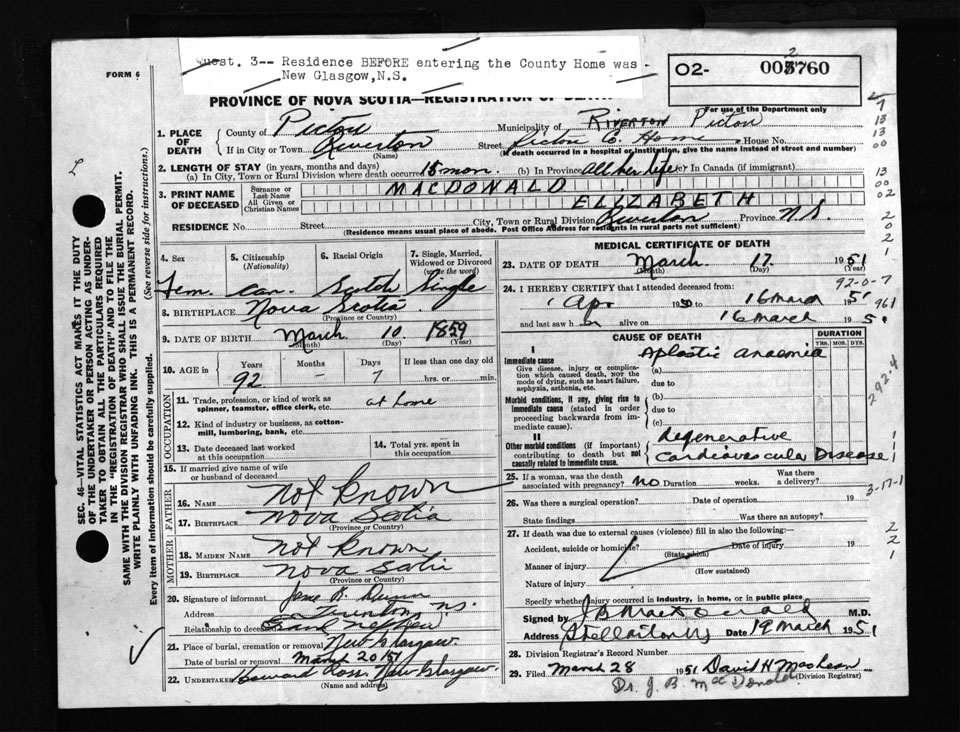 uest. 3-- Residence BEFORE entering the County Home was
New Glasgow,N.S.
FORM 6
O2-
005760
2
For use of the Department only
PROVINCE OF NOVA SCOTIA—REGISTRATION OF DEA
1. PLACE OF DEATH
County of Pictou
Municipality of RIVERTON Pictou
If in City or Town Riverton
(Name)
Street Pictou Co Home House No.
(If death occurred in a hospital or institution, give the name instead of street and number)
2. LENGTH OF STAY (in years, months and days)
(a) In City, Town or Rural Division where death occurred 15 mon. (b) In Province All her life (c) In Canada (if immigrant)
3. PRINT NAME OF DECEASED
Surname or Last Name MACDONALD
All Given or Christian Names ELIZABETH
RESIDENCE No. Street City, Town or Rural Division Riverton Province N.S.
(Residence means usual place of abode. Post Office Address for residents in rural parts not sufficient)
4. Sex
Fem.
5. Citizenship
(Nationality)
Can.
6. Racial Origin
Scotch
7. Single, Married, Widowed or Divorced
(write the word)
Single
8. BIRTHPLACE Nova Scotia
(Province or Country)
9. DATE OF BIRTH March 10 1859
(Month) (Day) (Year)
10. AGE in
Years Months Days If less than one day old
92 - 7 hrs. or min.
OCCUPATION
11. Trade, profession, or kind of work as spinner, teamster, office clerk, etc. at home
12. Kind of industry or business, as cotton-mill, lumbering, bank, etc.
13. Date deceased last worked at this occupation
14. Total yrs. spent in this occupation
15. If married give name of wife or husband of deceased
FATHER
16. Name not known
17. Birthplace Nova Scotia
(Province or Country)
MOTHER
18. Maiden Name not known
19. Birthplace Nova Scotia
(Province or Country)
20. Signature of informant
Address Trenton, N.S.
Relationship to deceased
21. Place of burial, cremation or removal New Glasgow.
Date of burial or removal March 20
22. Undertaker Howard Ross, New Glasgow.
(Name and address)
MEDICAL CERTIFICATE OF DEATH
23. DATE OF DEATH March 17. 1951
(Month) (Day) (Year)
24. I HEREBY CERTIFY that I attended deceased from:
1 Apr 1950 to 16 March 1951
and last saw her alive on 16 March 1951
CAUSE OF DEATH
DURATION
YRS. MOS. DYS.
I
Immediate cause
Give disease, injury or complication which caused death, NOT the mode of dying, such as heart failure, asphyxia, asthenia, etc.
Aplastic anaemia
(a)
due to
Morbid conditions, if any, giving rise to immediate cause (stated in order proceeding backwards from immediate cause).
(b)
due to
(c)
II
Other morbid conditions (if important) contributing to death but not causally related to immediate cause.
Degenerative
Cardiovascular Disease
25. If a woman, was the death associated with pregnancy? no Duration weeks. Was there a delivery?
26. Was there a surgical operation? Date of operation 19
State findings Was there an autopsy?
27. If death was due to external causes (violence) fill in also the following:—
Accident, suicide or homicide? Date of injury 19
(State which)
Manner of injury
(How sustained)
Nature of injury
Specify whether injury occurred in industry, in home, or in public place
Signed by J B MacDonald M.D.
Address Stellarton NS Date 19 March 1951
28. Division Registrar's Record Number
29. Filed March 28 1951 David H MacLean
(Division Registrar)
Dr. J. B. MacDonald
SEC. 46—VITAL STATISTICS ACT MAKES IT THE DUTY
OF THE UNDERTAKER OR PERSON ACTING AS UNDER-
TAKER TO OBTAIN ALL THE PARTICULARS REQUIRED
IN THE "REGISTRATION OF DEATH" AND TO FILE THE
SAME WITH THE DIVISION REGISTRAR WHO SHALL ISSUE THE BURIAL PERMIT.
WRITE PLAINLY WITH UNFADING INK. THIS IS A PERMANENT RECORD.
Every item of information should be carefully supplied. (See reverse side for instructions.)
13
13
00
13
00
02
2
0
2
1
92-0-7
961
292.4
1
1
1
3-17-1
2
2
1